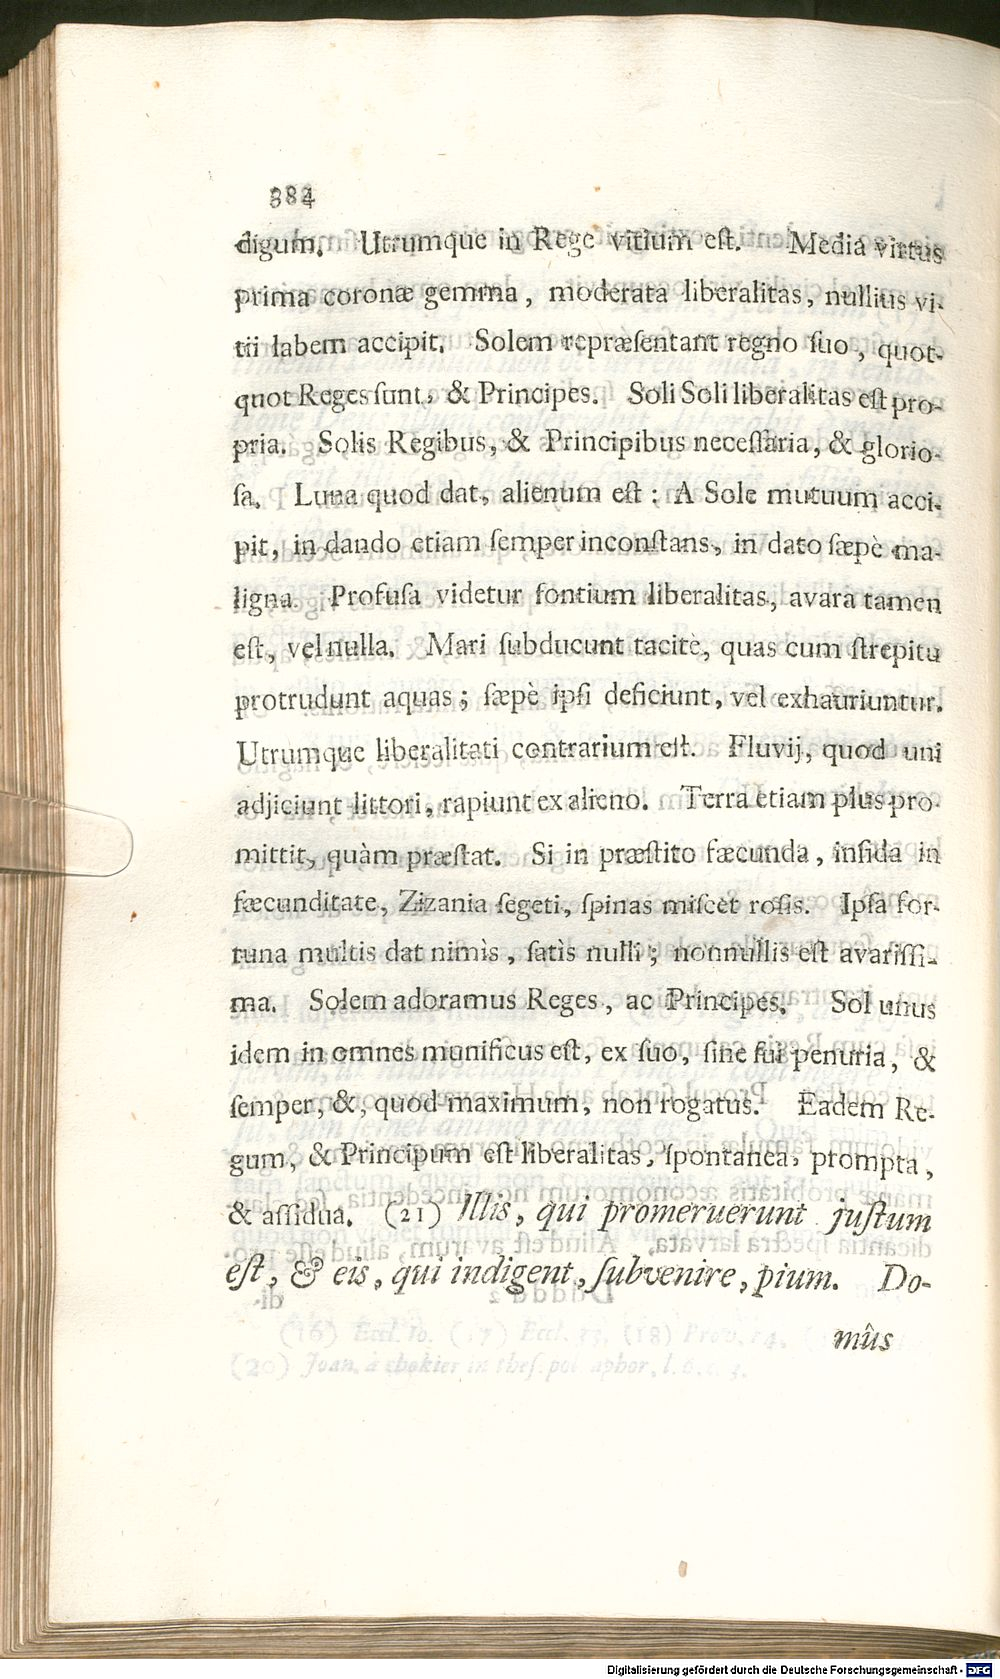 384
digum. Utrumque in Rege vitium eſt. Media virtus
prima coronæ gemma, moderata liberalitas, nullius vi-
tii labem accipit. Solem repræſentant regno ſuo, quot-
quot Reges ſunt, & Principes. Soli Soli liberalitas eſt pro-
pria. Solis Regibus, & Principibus neceſſaria, & glorio-
ſa. Luna quod dat, alienum eſt; A Sole mutuum acci-
pit, in dando etiam ſemper inconſtans, in dato ſæpè ma-
ligna. Profuſa videtur fontium liberalitas, avara tamen
eſt, vel nulla. Mari ſubducunt tacitè, quas cum ſtrepitu
protrudunt aquas; ſæpè ipſi deficiunt, vel exhauriuntur.
Utrumque liberalitati contrarium eſt. Fluvij, quod uni
adjiciunt littori, rapiunt ex alieno. Terra etiam plus pro-
mittit, quàm præſtat. Si in præſtito fæcunda, infida in
fæcunditate, Zizania ſegeti, ſpinas miſcet roſis. Ipſa for-
tuna multis dat nimìs, ſatìs nulli; nonnullis eſt avariſſi-
ma. Solem adoramus Reges, ac Principes. Sol unus
idem in omnes munificus eſt, ex ſuo, ſine ſui penuria, &
ſemper, &, quod maximum, non rogatus. Eadem Re-
gum, & Principum eſt liberalitas, ſpontanea, prompta,
& aſſidua. (21) Illis, qui promeruerunt juſtum
eſt, & eis, qui indigent, ſubvenire, pium. Do-
mûs
Digitalisierung gefördert durch die Deutsche Forschungsgemeinschaft - DFG